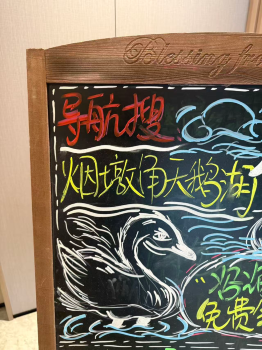 Blessing fro
导航搜
烟墩角天鹅湖
免费